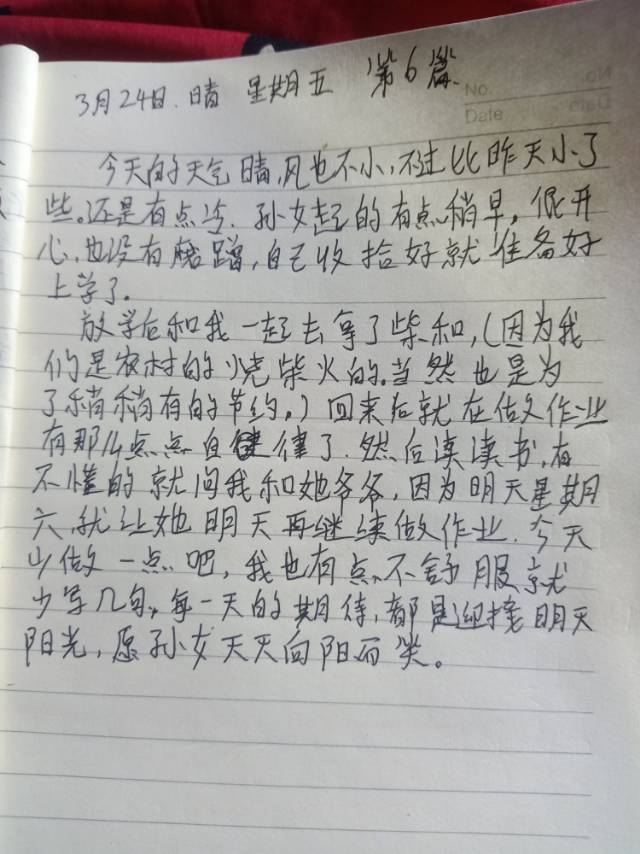 3月24日.晴 星期五 第6篇
No.
Date
今天的天气晴,风也不小,不过比昨天小了
些。还是有点冷.孙女起的有点稍早,很开
心,也没有磨蹭,自己收拾好就准备好
上学了.
放学后和我一起去拿了柴和,(因为我
们是农村的烧柴火的.当然也是为
了稍稍有的节约。)回来后就在做作业
有那么点点自律了.然后读读书,有
不懂的就问我和她爷爷,因为明天星期
六,就让她明天再继续做作业.今天
少做一点吧,我也有点不舒服就
少写几句,每一天的期待,都是迎接明天
阳光,愿孙女天天向阳而笑。